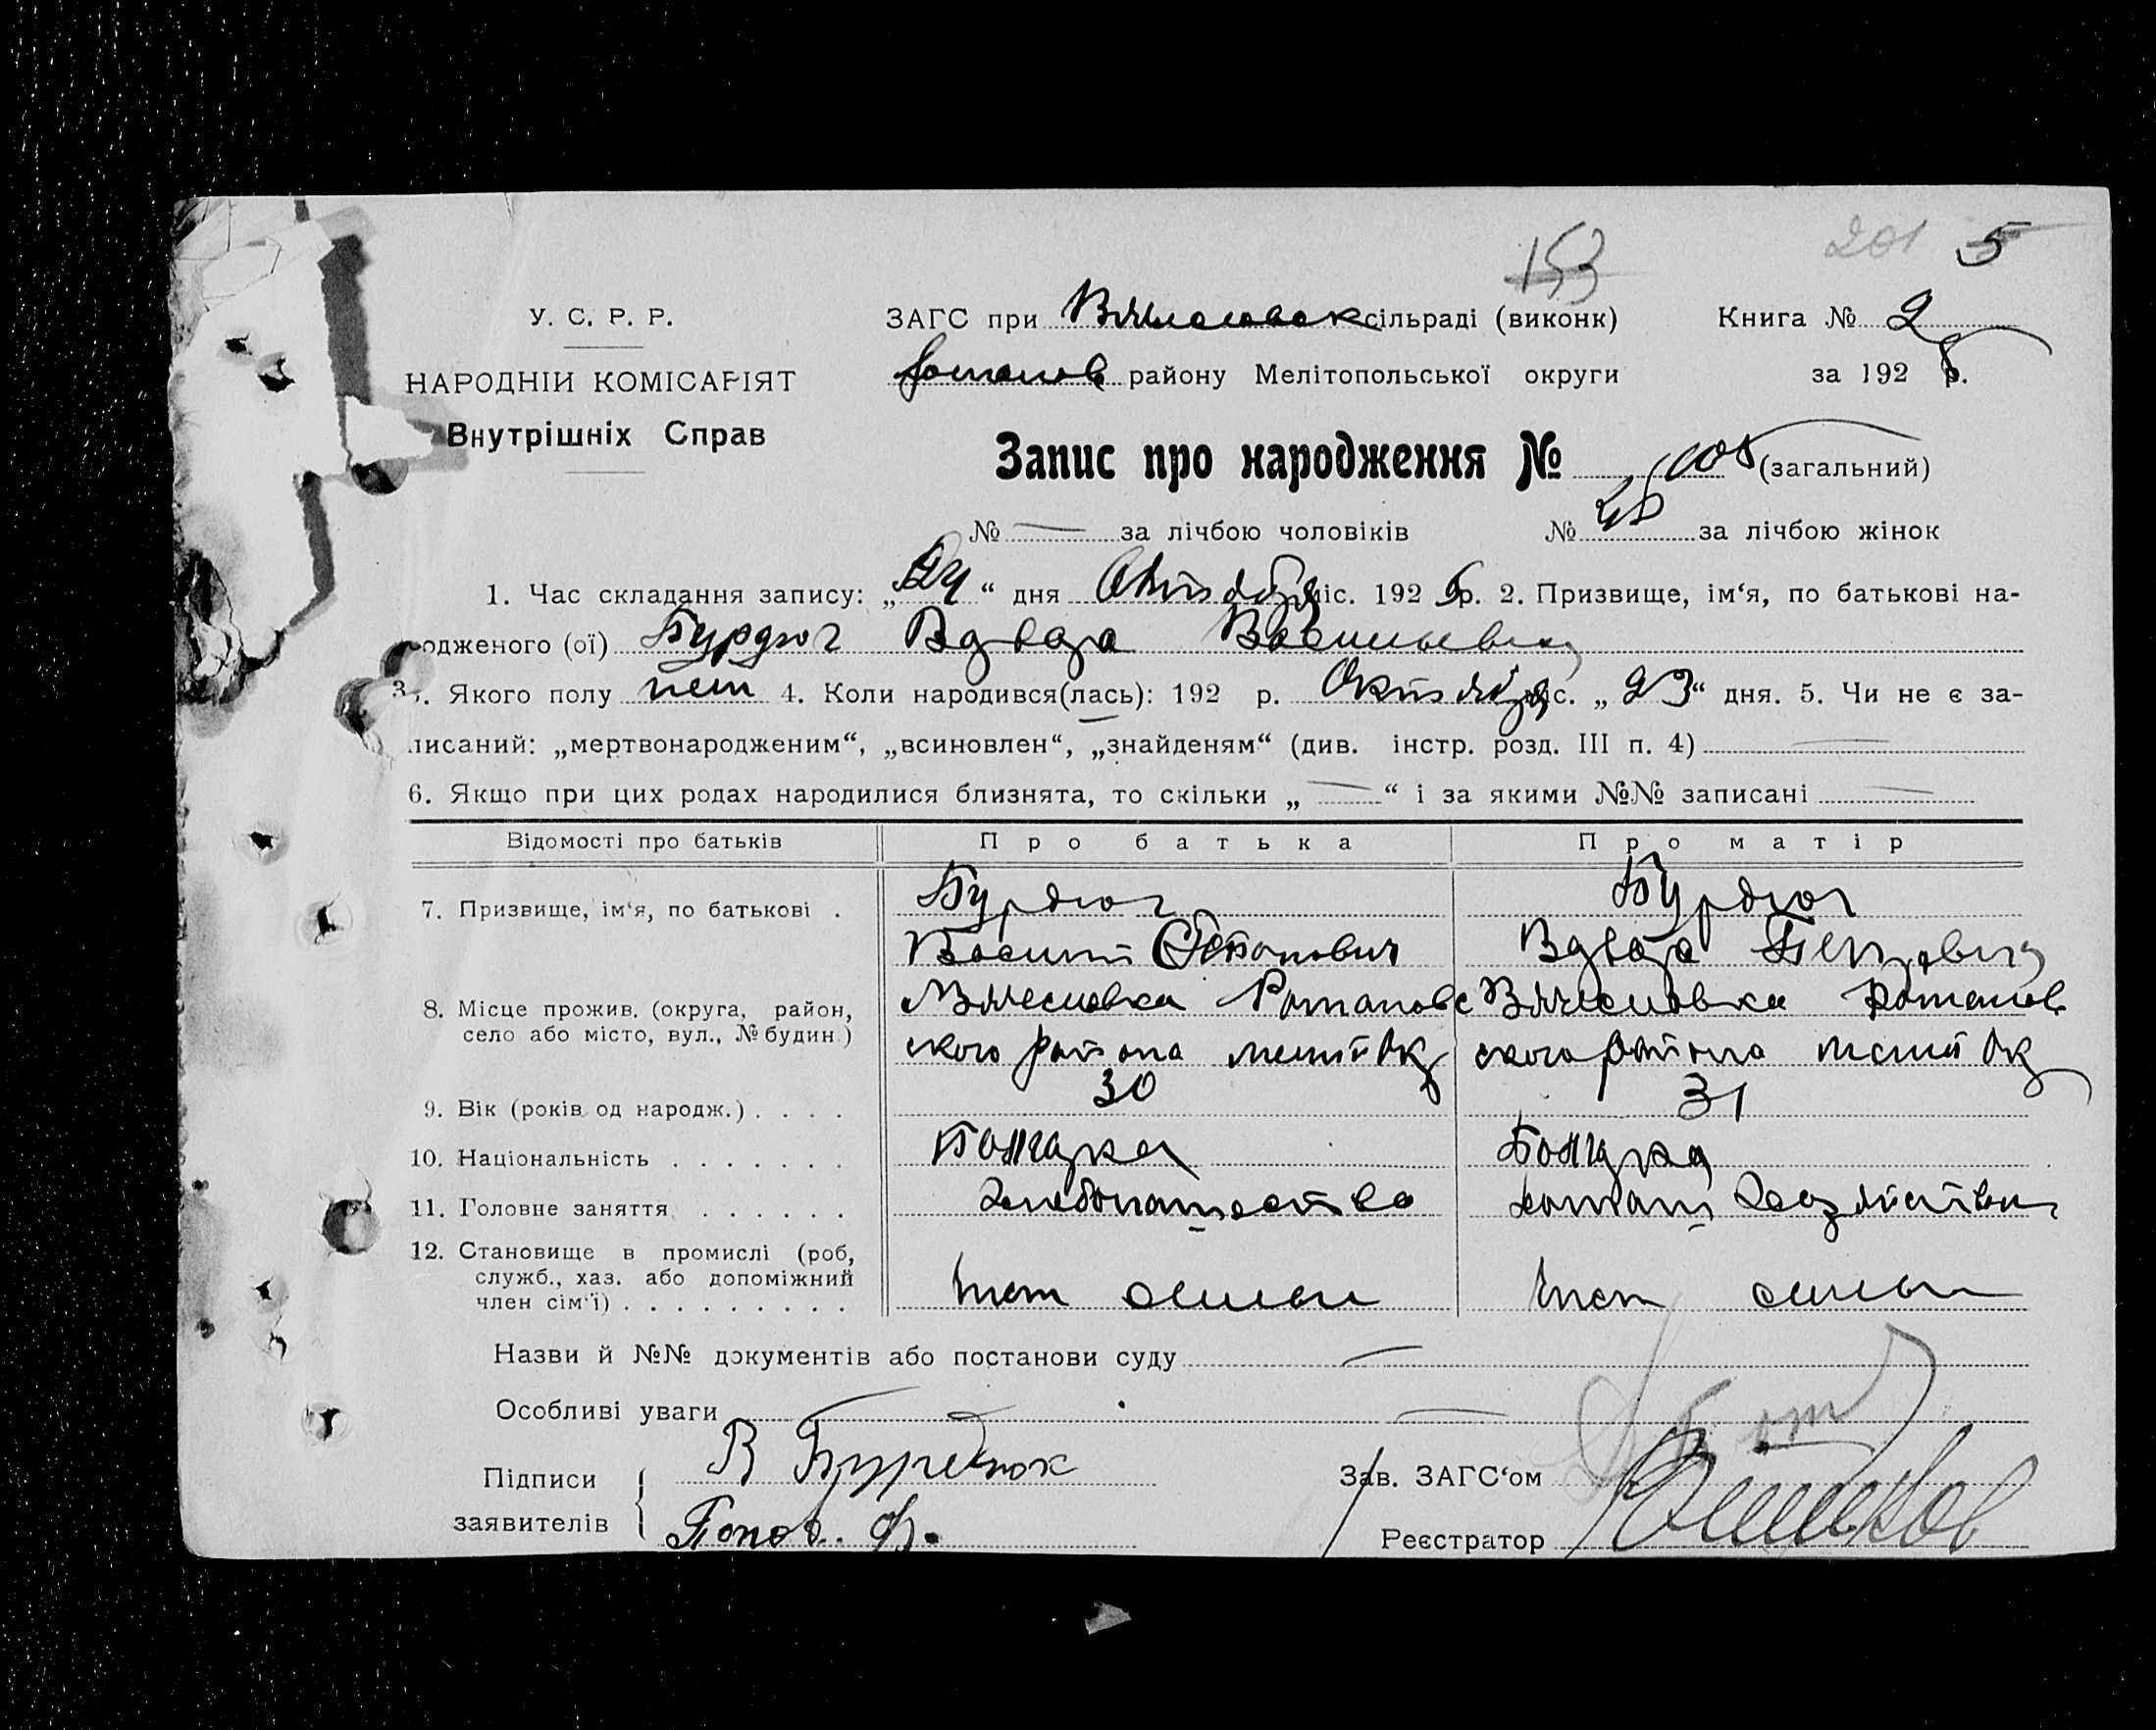 153
201 5
У. С. Р. Р.
НАРОДНІЙ КОМІСАРІЯТ
Внутрішніх Справ
ЗАГС при сільраді (виконк)
Книга № 2
району Мелітопольської округи
за 192 р.
Запис про народження № (загальний)
№ — за лічбою чоловіків № за лічбою жінок
1. Час складання запису: „24“ дня Октября міс. 1926 р. 2. Призвище, ім‘я, по батькові на-
одженого (ої) Васильевна
3. Якого полу 4. Коли народився(лась): 192 р. Октября міс. „23“ дня. 5. Чи не є за-
писаний: „мертвонародженим“, „всиновлен“, „знайденям“ (див. інстр. розд. III п. 4) —
6. Якщо при цих родах народилися близнята, то скільки „—“ і за якими №№ записані —
Відомості про батьків Про батька Про матір
7. Призвище, ім‘я, по батькові .
Василий Степанович
Петровна
8. Місце прожив. (округа, район,
село або місто, вул., № будин.)
Вячеславка Романовс Вячеславка Романов
ского района мелит Ок ского района мелит Ок
9. Вік (років од народж.) . . . . 30 31
10. Національність . . . . . . . Болгарка Болгарка
11. Головне заняття . . . . . . Хлебопашество домаш хозяйство
12. Становище в промислі (роб,
служб., хаз. або допоміжний
член сім‘ї) . . . . . . . . .
член семьи член семьи
Назви й №№ документів або постанови суду —
Особливі уваги —
Підписи
заявителів
В Бурдюк
Попов. Ф.
Зав. ЗАГС‘ом
Реєстратор